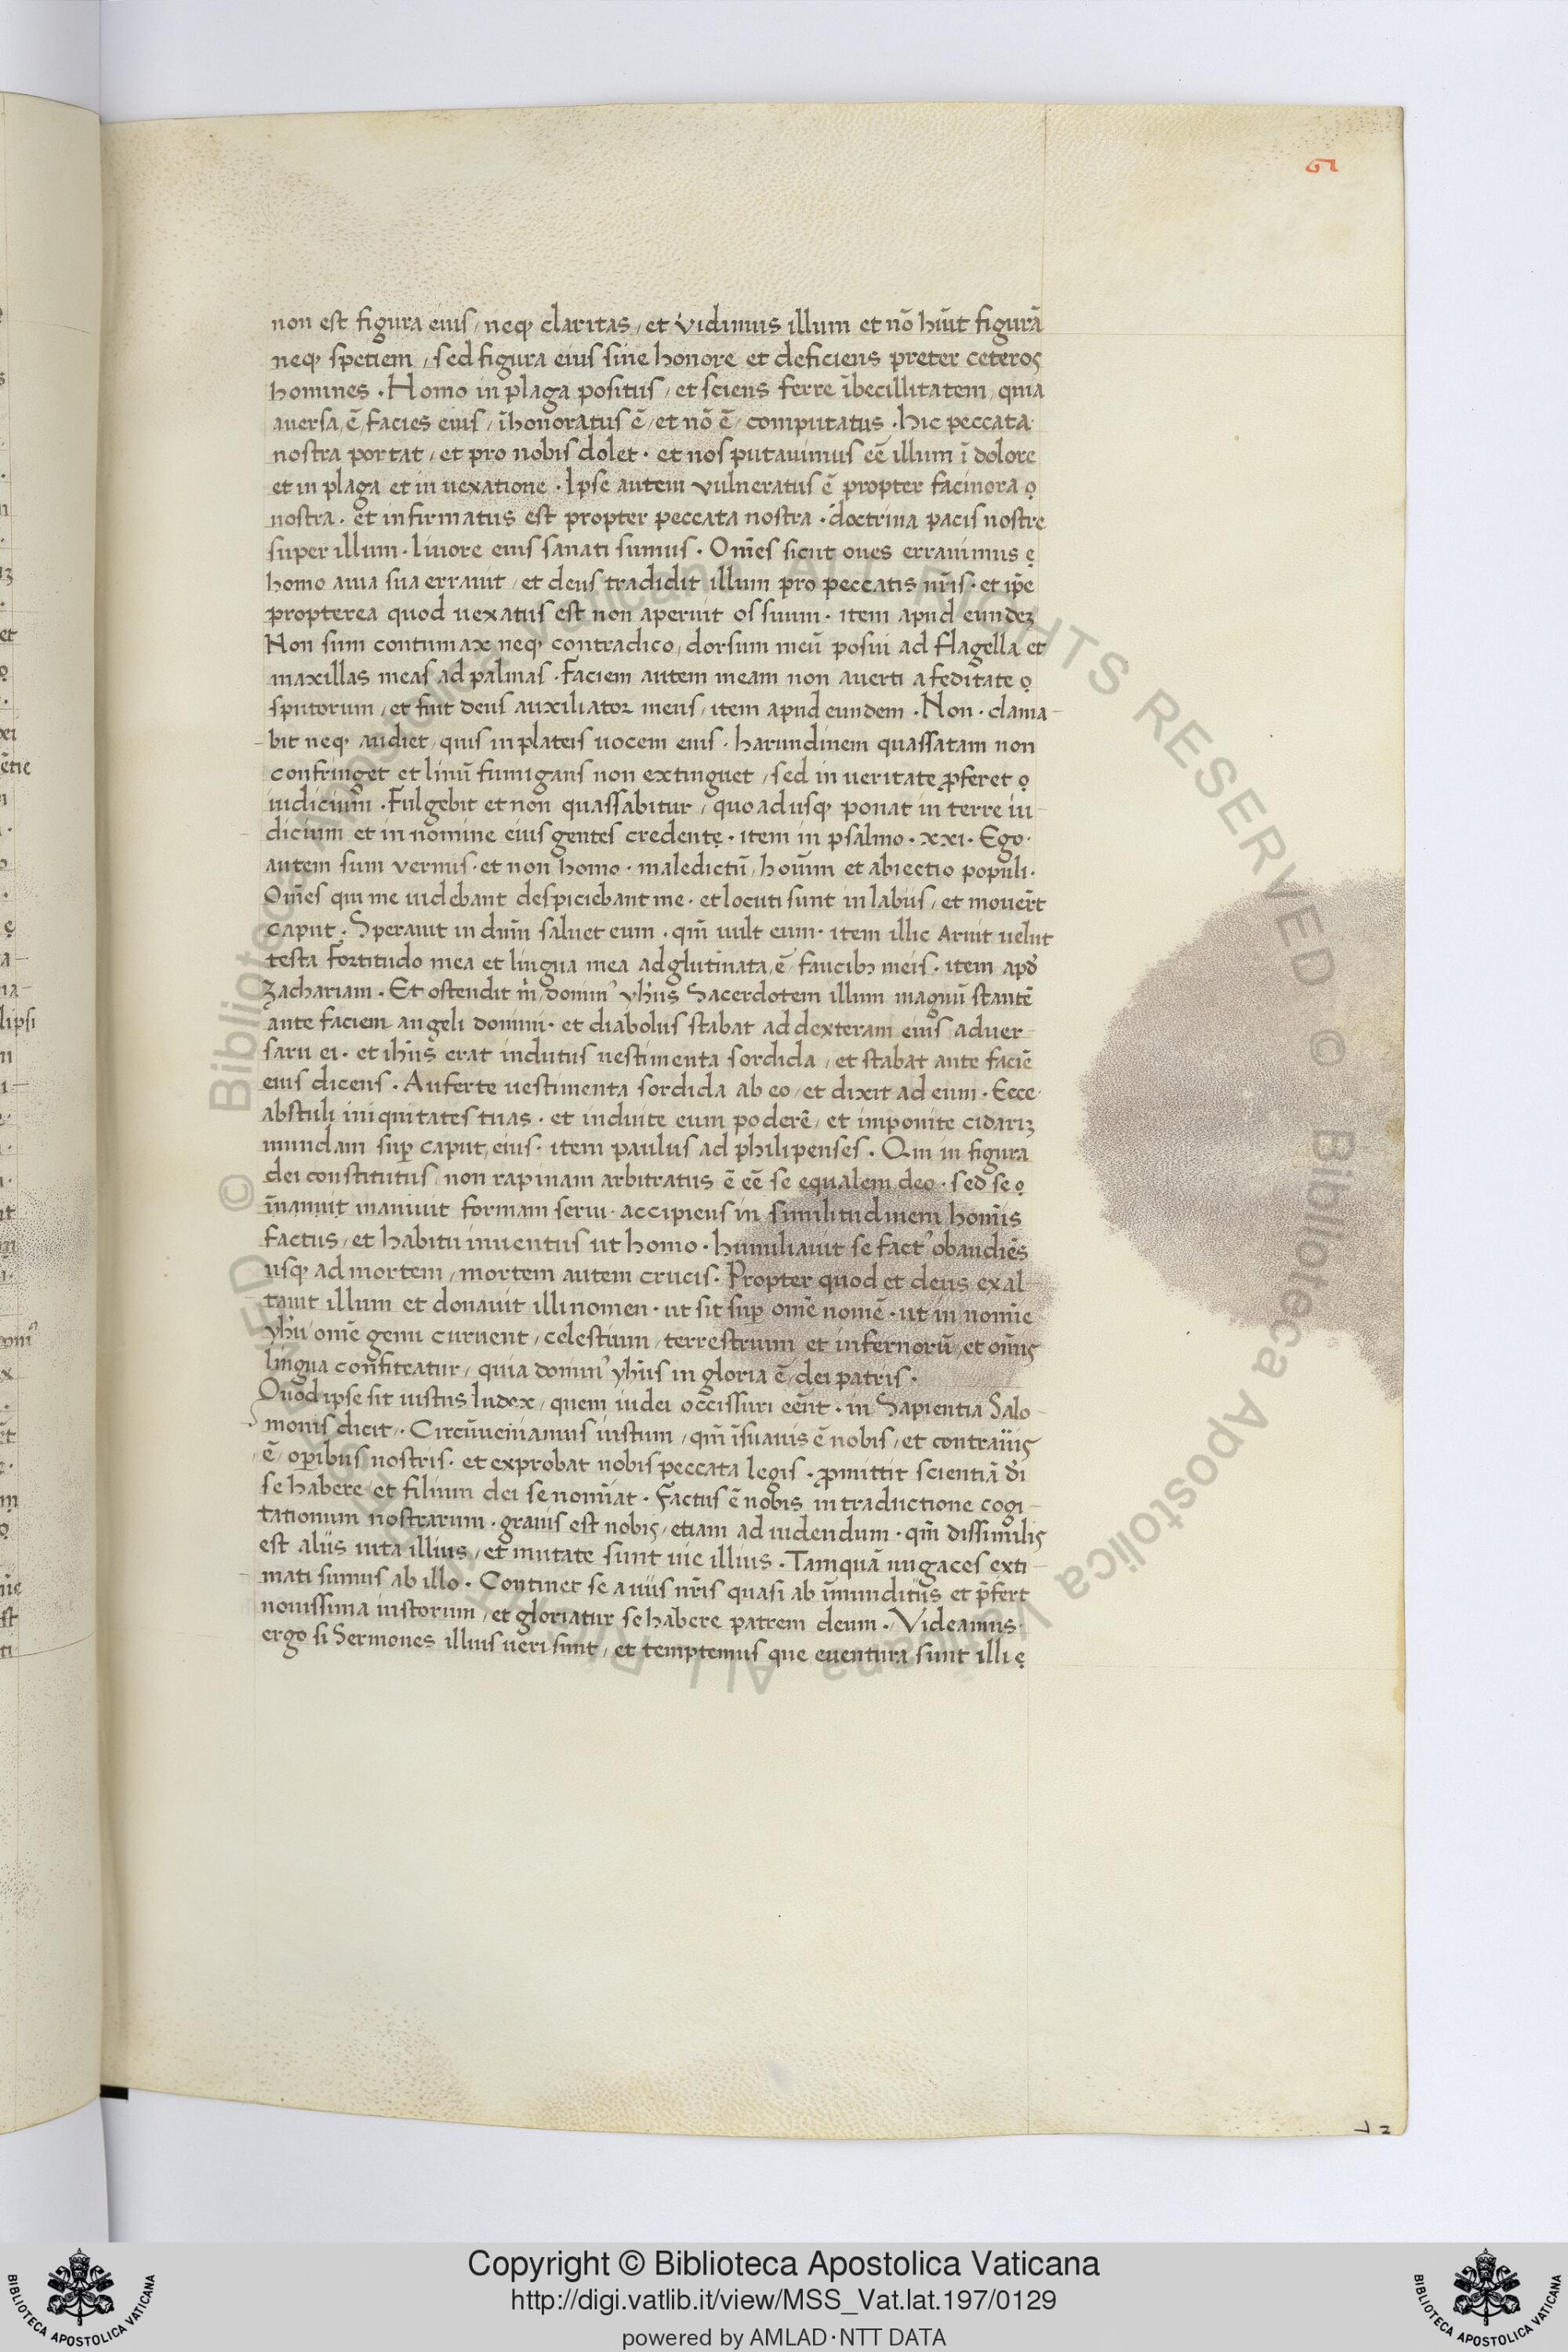 61
non est figura eius / neq; claritas / et vidimus illum et nō hūit figurā
neq; spetiem / sed figura eius sine honore et deficiens preter ceteros
homines · Homo in plaga positus / et sciens ferre ībecillitatem / quia
auersa / ē / facies eius / īhonoratus ē / et nō ē / computatus · hic peccata
nostra portat / et pro nobis dolet · et nos putauimus eē illum ī dolore
et in plaga et in uexatione · Ipse autem vulneratus ē propter facinora
nostra · et infirmatus est propter peccata nostra · doctrina pacis nostre
super illum · liuore eius sanati sumus · Om̄es sicut oues errauimus
homo auia sua errauit / et deus tradidit illum pro peccatis nr̄is · et ip̄e
propterea quod uexatus est non aperuit os suum · item apud eundeʒ
Non sum contumax neq; contradico / dorsum meū posui ad flagella et
maxillas meas ad palmas · Faciem autem meam non auerti a feditate
sputorum / et fuit deus auxiliator meus / item apud eundem · Non · clama-
bit neq; audiet / quis in plateis uocem eius · harundinem quassatam non
confringet et linū fumigans non extinguet / sed in ueritate ꝓferet
iudicium · Fulgebit et non quassabitur / quoadusq; ponat in terre iu-
dicium et in nomine eius gentes credent · item in psalmo · xxi · Ego
autem sum vermis · et non homo · maledictū / hoīum et abiectio populi ·
Om̄es qui me uidebant despiciebant me · et locuti sunt in labiis / et mouer̄t
caput · Sperauit in dn̄m saluet eum · qm̄ uult eum · item illic Aruit uelut
testa fortitudo mea et lingua mea adglutinata / ē / faucibꝫ meis · item apđ
Zachariam · Et ostendit m̄ / domin' yhu̅s Sacerdotem illum magnū stantē
ante faciem angeli domini · et diabolus stabat ad dexteram eius aduer-
saru ei · et ihu̅s erat indutus uestimenta sordida / et stabat ante faciē
eius dicens · Auferte uestimenta sordida ab eo / et dixit ad eum · Ecce
abstuli iniquitates tuas · et induite eum poderē / et imponite cidariʒ
mundam suꝑ caput eius · item paulus ad philipenses · Qui in figura
dei constitutus / non rapinam arbitratus ē eē se equalem deo · sed se
īnanuit inaniuit formam serui · accipiens in similitudinem hom̄is
factus / et habitu inuentus ut homo · humiliauit se fact' obaudiēs
usq; ad mortem / mortem autem crucis · Propter quod et deus exal-
tauit illum et donauit illi nomen · ut sit suꝑ om̄e nomē · ut in nom̄ie
yhu̅ om̄e genu curuent / celestium / terrestruim et infernorū / et om̄is
lingua confiteatur / quia domin' yhu̅s in gloria ē / dei patris ·
Quod ipse sit iustus Iudex / quem iudei occissuri eēnt · in Sapientia Salo-
monis dicit / · Circūueniamus iustum / qm̄ īsuauis ē nobis / et contrariis
ē / oꝑibus nostris · et exprobat nobis peccata legis · ꝓmittit scientiā đi
se habere et filium dei se nom̄iat · Factus ē nobis in traductione cogi-
tationum nostrarum · grauis est nobis / etiam ad uidendum · qm̄ dissimilis
est aliis uita illius / et mutate sunt uie illius · Tamquā nugaces exti-
mati sumus ab illo · Continet se a uiis nr̄is quasi ab īmunditiis et p̄fert
nouissima iustorum / et gloriatur se habere patrem deum · Videamus
ergo si Sermones illius ueri sunt / et temptemus que euentura sunt illi
Copyright © Biblioteca Apostolica Vaticana
http://digi.vatlib.it/view/MSS_Vat.lat.197/0129
powered by AMLAD·NTT DATA
BIBLIOTECA APOSTOLICA VATICANA
BIBLIOTECA APOSTOLICA VATICANA